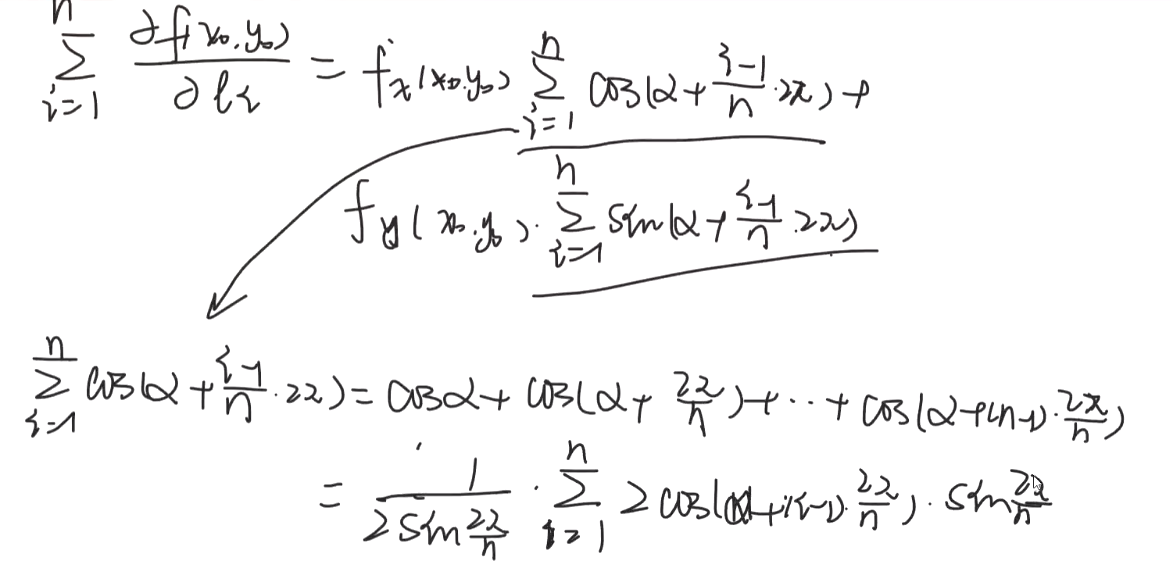 \sum_{i=1}^{n} \frac{\partial f(x_0, y_0)}{\partial l_i} = f_x(x_0, y_0) \sum_{i=1}^{n} \cos(\alpha + \frac{i-1}{n} \cdot 2\pi) +
f_y(x_0, y_0) \cdot \sum_{i=1}^{n} \sin(\alpha + \frac{i-1}{n} \cdot 2\pi)
\sum_{i=1}^{n} \cos(\alpha + \frac{i-1}{n} \cdot 2\pi) = \cos\alpha + \cos(\alpha + \frac{2\pi}{n}) + \cdots + \cos(\alpha + (n-1) \cdot \frac{2\pi}{n})
= \frac{1}{2\sin\frac{2\pi}{n}} \cdot \sum_{i=1}^{n} 2\cos(\alpha + (i-1) \cdot \frac{2\pi}{n}) \cdot \sin\frac{2\pi}{n}